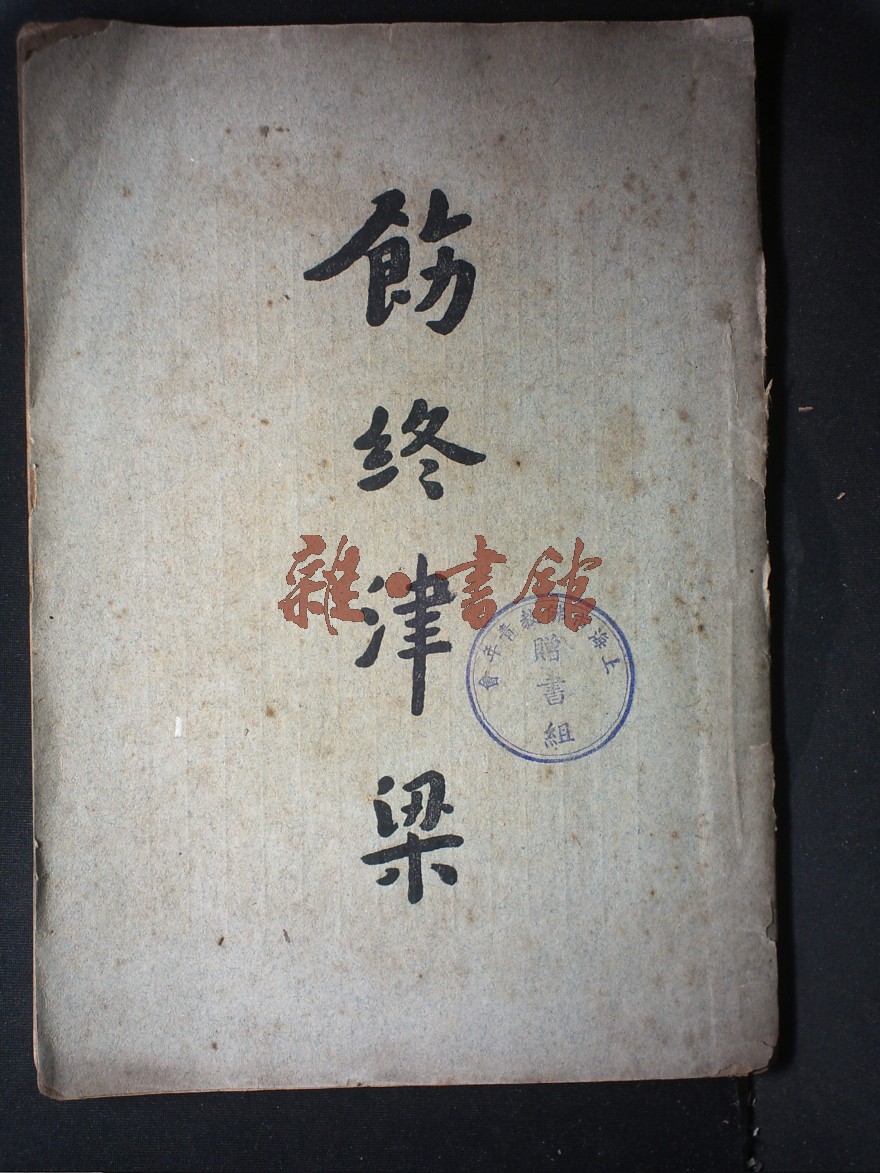 飭終津梁
雜·書館
上海佛教青年會
贈書組